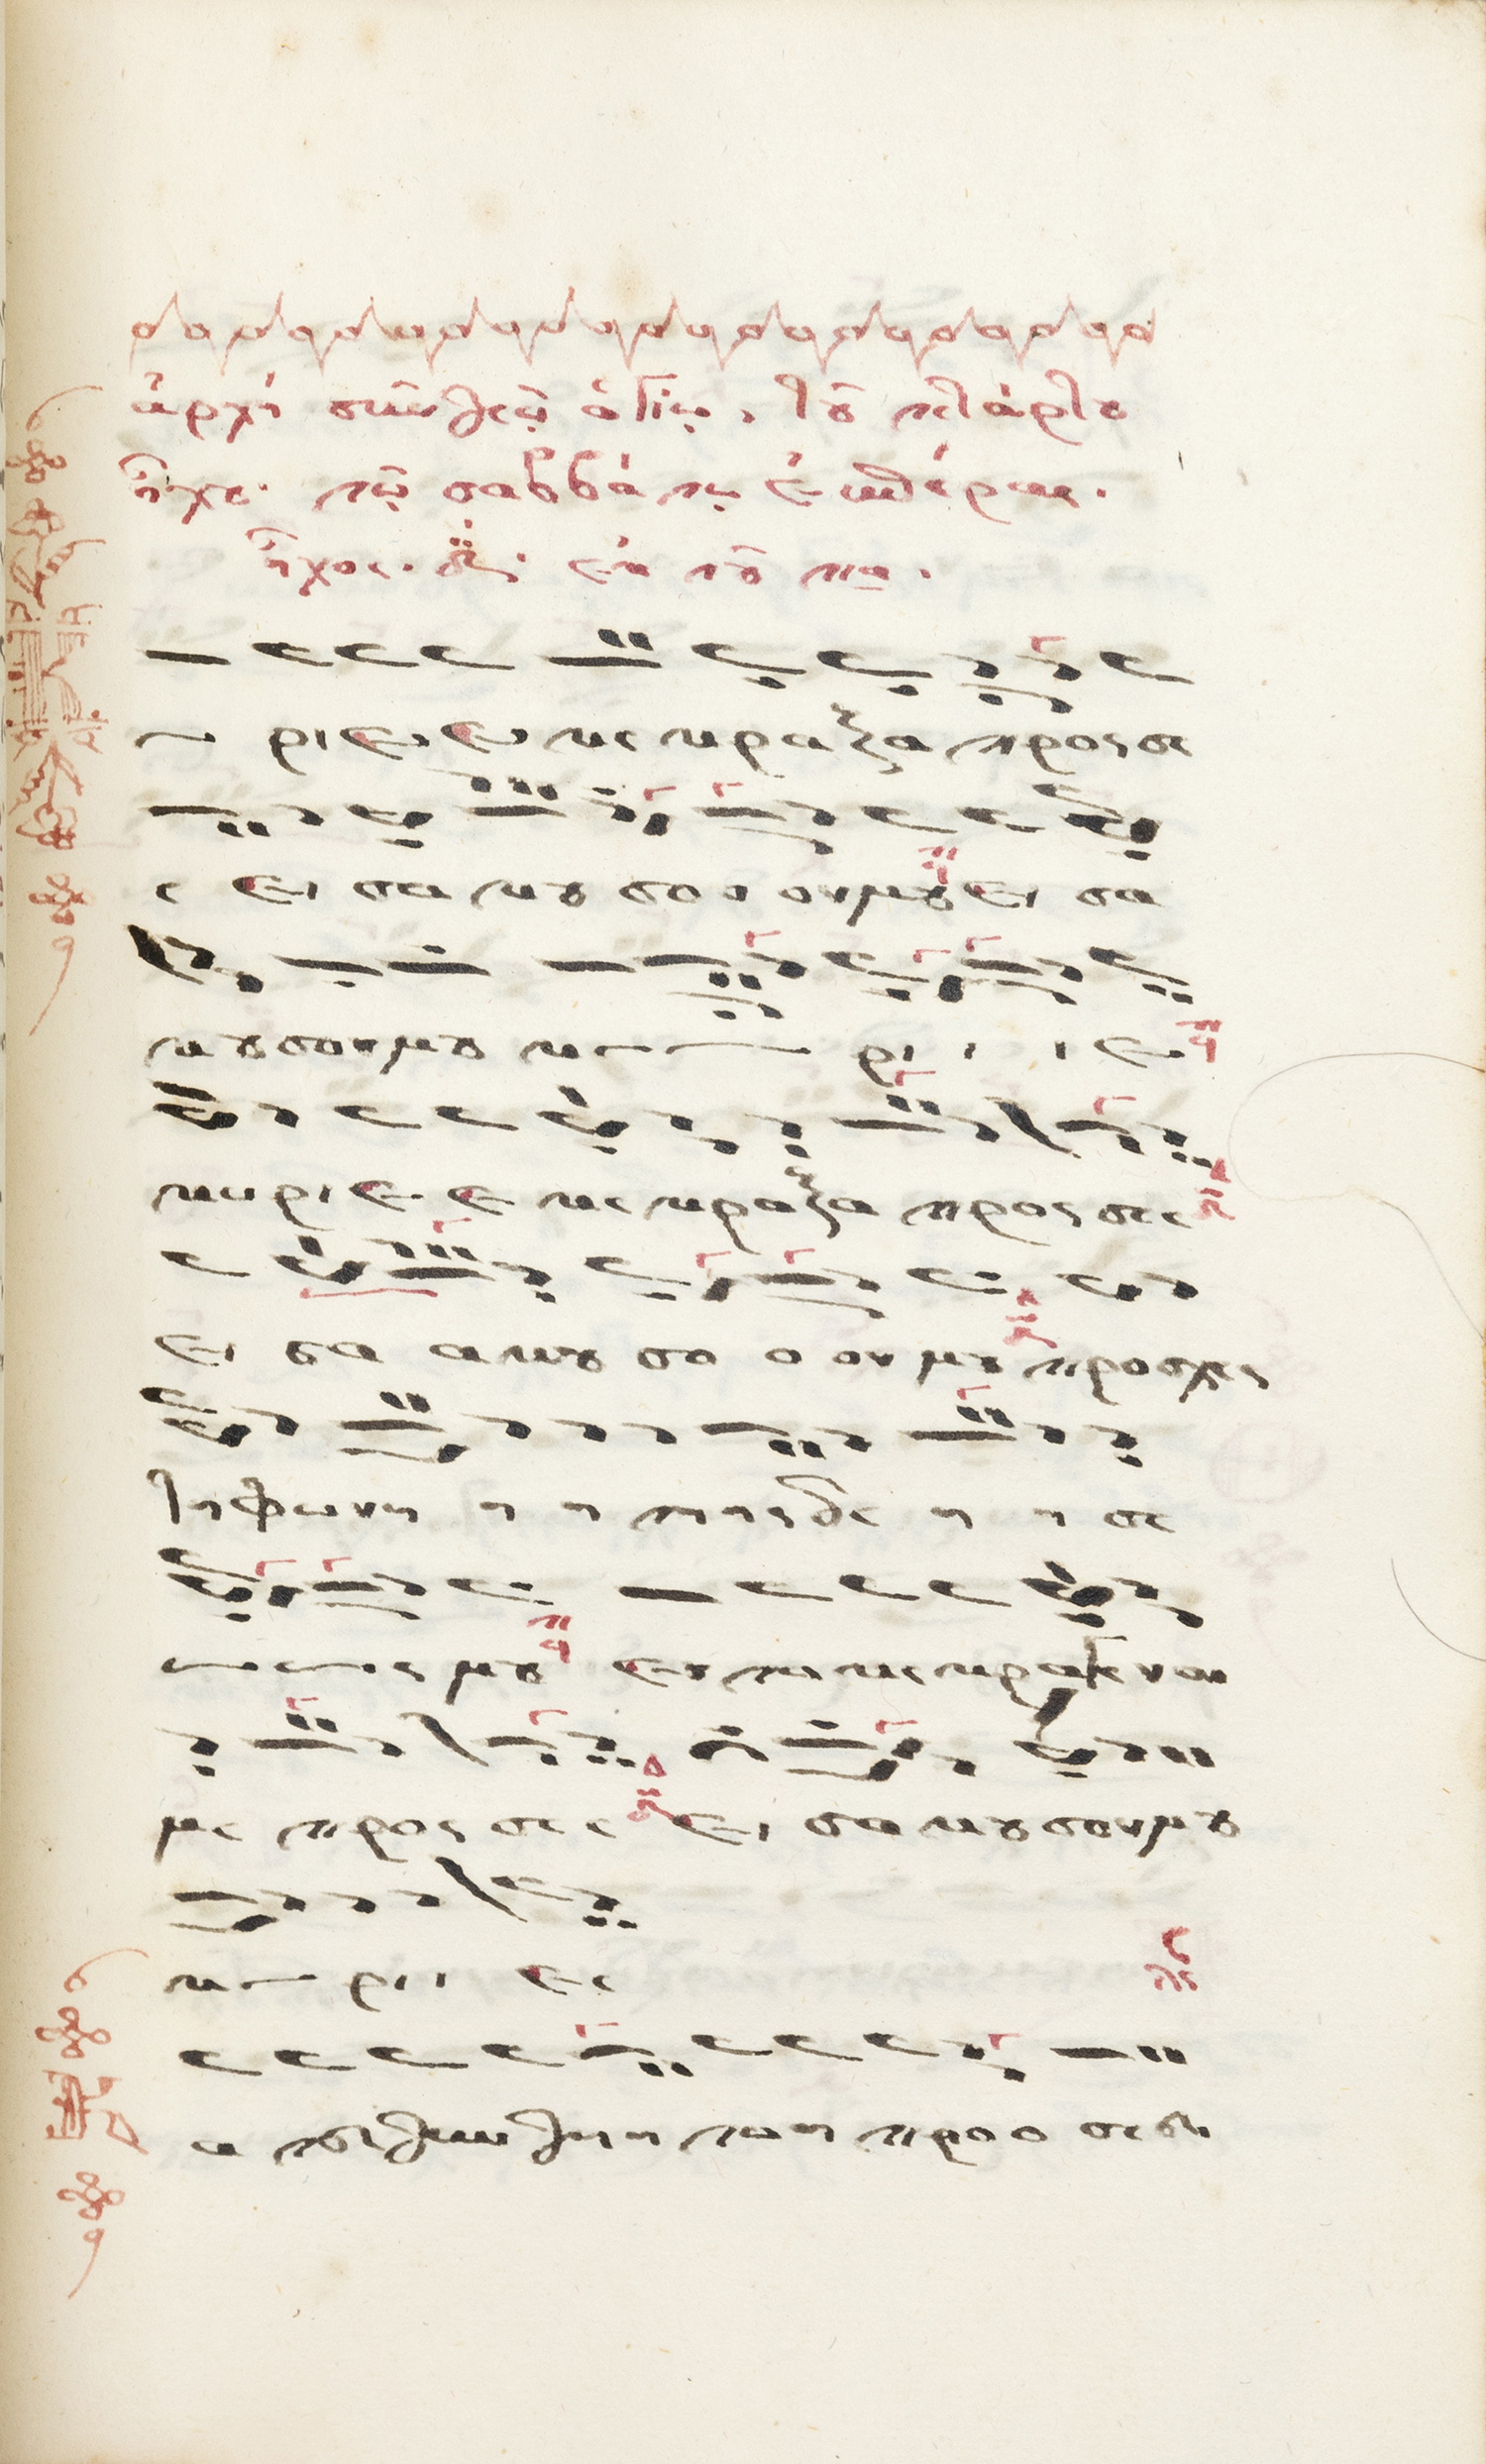 ἀρχὴ σὺν Θεῷ ἁγίῳ, τοῦ τετάρτου
ἤχου. τῷ σαββάτῳ ἑσπέρας.
ἦχος. δ. ἐκ τοῦ πα.
ρι ε ε κε κραξα προς σε
ε ει σα κου σο ο ον μου ει σα
κου σον μου κυ ρι ι ι ε
κυ ρι ε ε κε κραξα προς σε ε
ει σα α κου σο ο ον μου προσχες
τη φωνη η η της δε η η σε
ως μου εν τω κε κρα γε ναι
με προς σε ε ει σα κου σον μου
κυ ρι ι ε ε
προ ο σε